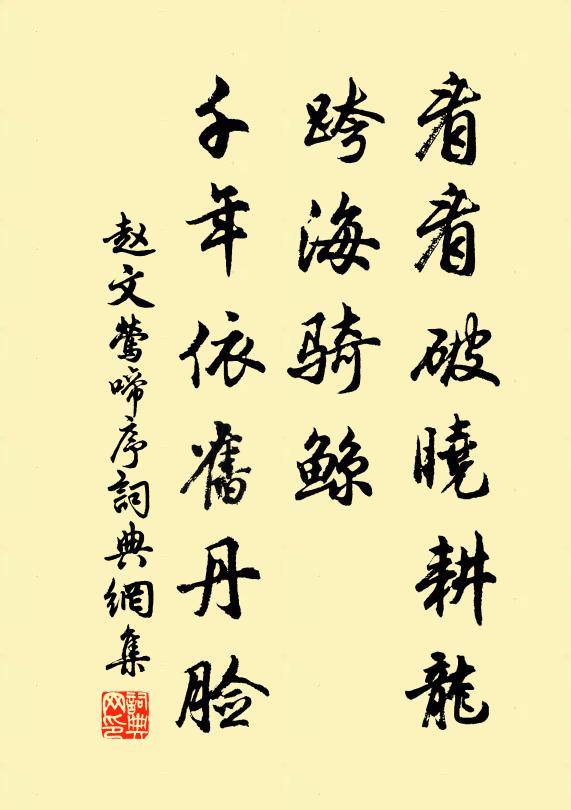 看看破曉耕龍
跨海騎鯨
千年依舊丹臉
赵文鶯啼序詞典網集
詞典網印